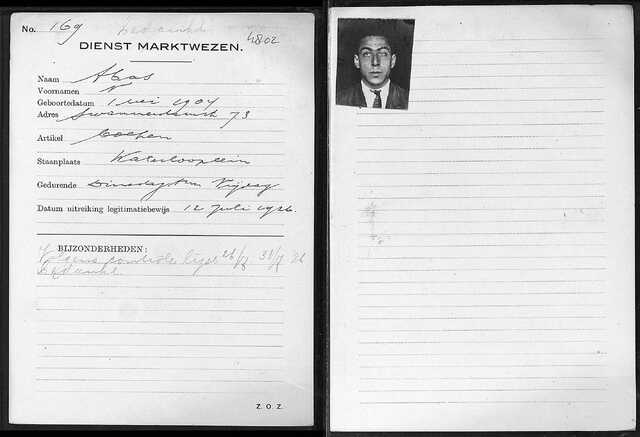 No. 169 bedankt 4802
DIENST MARKTWEZEN.
Naam Haas
Voornamen N
Geboortedatum 1 mei 1907
Adres Swammerdamstr 73
Artikel
Staanplaats Waterlooplein
Gedurende Dinsdag t/m Vrijdag
Datum uitreiking legitimatiebewijs 12 Juli 1926.
BIJZONDERHEDEN:
Volgens controle lijst 26/7 31/7 26
bedankt
Z. O. Z.